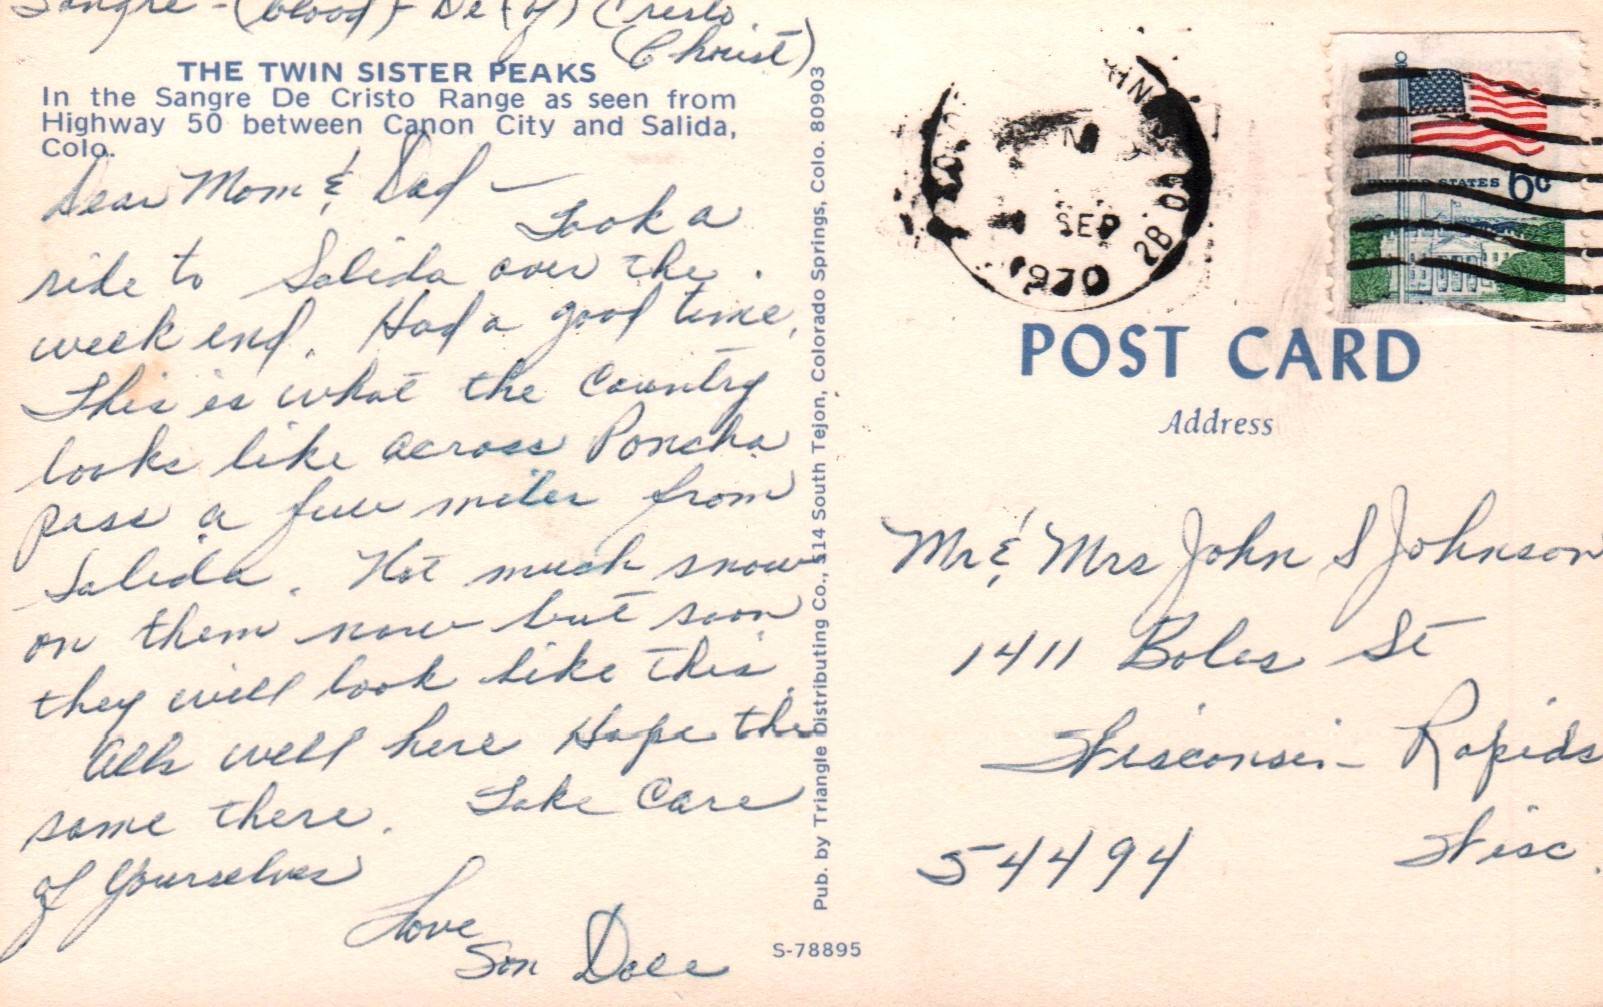 Sangre - (blood) - De (of) Cristo
(Christ)
THE TWIN SISTER PEAKS
In the Sangre De Cristo Range as seen from
Highway 50 between Canon City and Salida,
Colo.
Dear Mom & Dad —
Took a
ride to Salida over the
week end. Had a good time.
This is what the Country
looks like across Poncha
pass a few miles from
Salida. Not much snow
on them now but soon
they will look like this.
All's well here Hope the
same there. Take Care
of Yourselves
Love
Son Dale
S-78895
Pub. by Triangle Distributing Co., 514 South Tejon, Colorado Springs, Colo. 80903
SEP
28
1970
UNITED STATES 6c
POST CARD
Address
Mr & Mrs John S Johnson
1411 Boles St
Wisconsin Rapids
54494 Wisc.